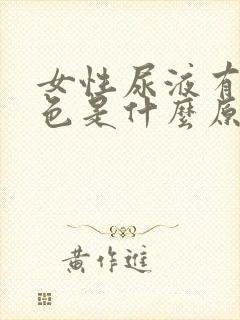 女性尿液有
色是什麼原
黄作進